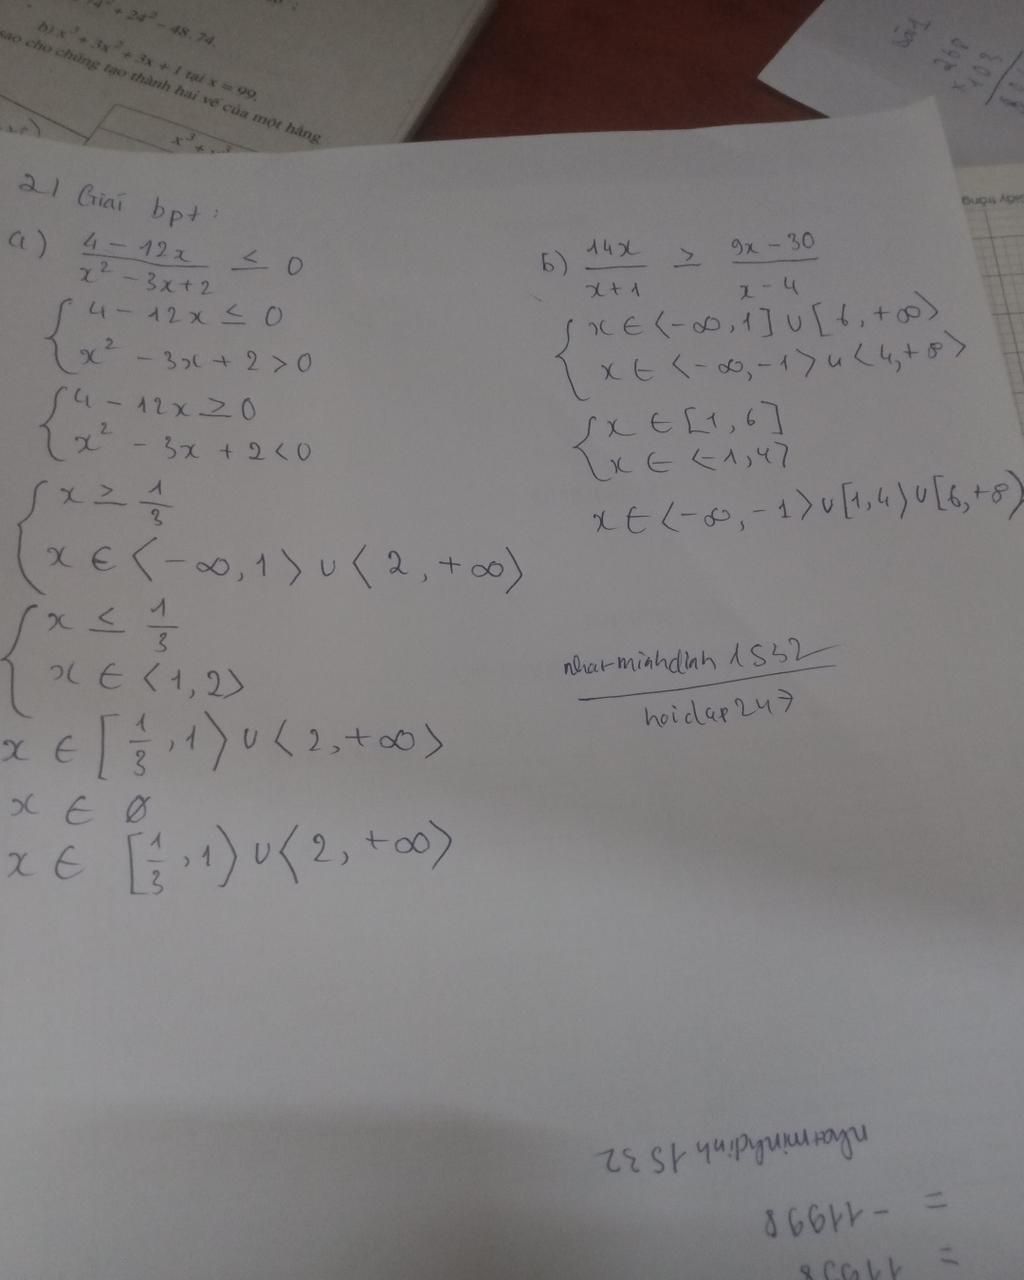 74² + 24² - 48.74.
b) x³ + 3x² + 3x + 1 tại x = 99.
sao cho chúng tạo thành hai vế của một hằng
bài 1
268
x 103
2/ Giaí bpt:
a) \frac{4 - 12x}{x² - 3x + 2} ≤ 0
{ 4 - 12x ≤ 0
x² - 3x + 2 > 0
{ 4 - 12x ≥ 0
x² - 3x + 2 < 0
{ x ≥ \frac{1}{3}
x ∈ ⟨-∞, 1⟩ ∪ ⟨2, +∞⟩
{ x ≤ \frac{1}{3}
x ∈ ⟨1, 2⟩
x ∈ [\frac{1}{3}, 1⟩ ∪ ⟨2, +∞⟩
x ∈ ∅
x ∈ [\frac{1}{3}, 1⟩ ∪ ⟨2, +∞⟩
b) \frac{14x}{x + 1} ≥ \frac{9x - 30}{x - 4}
{ x ∈ ⟨-∞, 1] ∪ [6, +∞⟩
x ∈ ⟨-∞, -1⟩ ∪ ⟨4, +∞⟩
{ x ∈ [1, 6]
x ∈ ⟨-1, 4⟩
x ∈ ⟨-∞, -1⟩ ∪ [1, 4⟩ ∪ [6, +∞⟩
nhatminhdinh 1532
hoidap247
nhatminhdinh 1532
= -11998